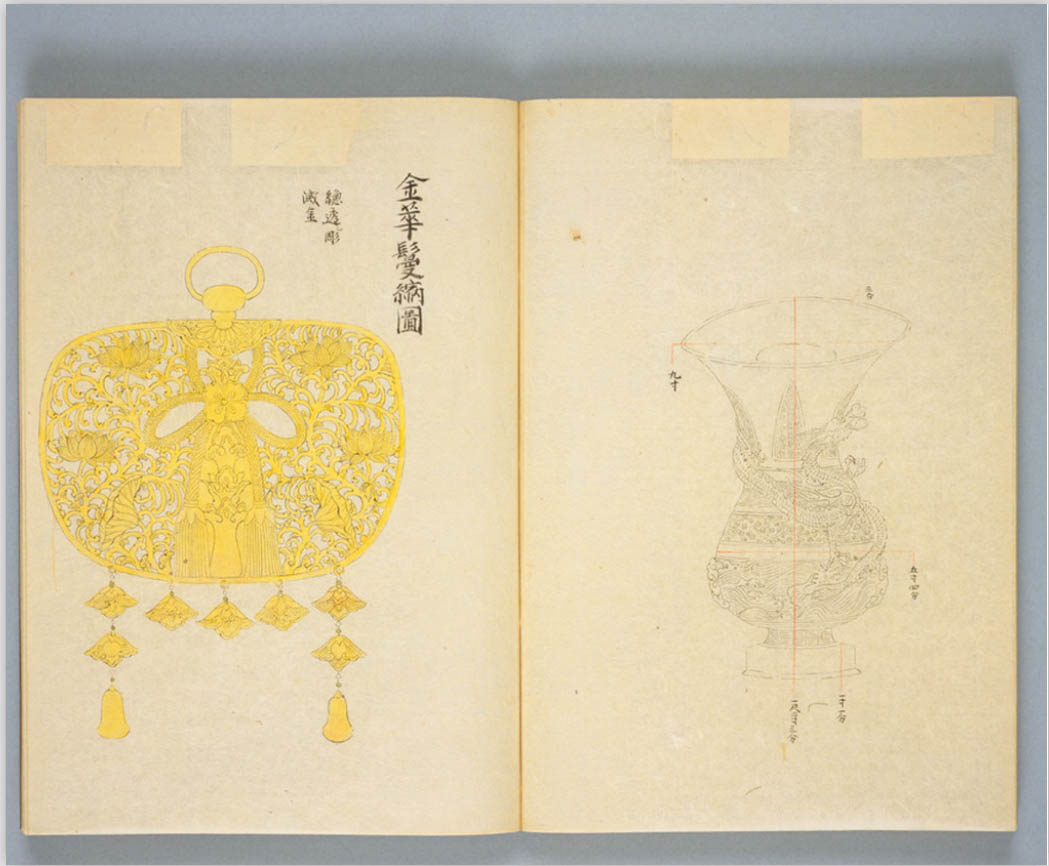 五寸四分
一寸一分
九寸
金華鬘縮圖
總透彫
滅金